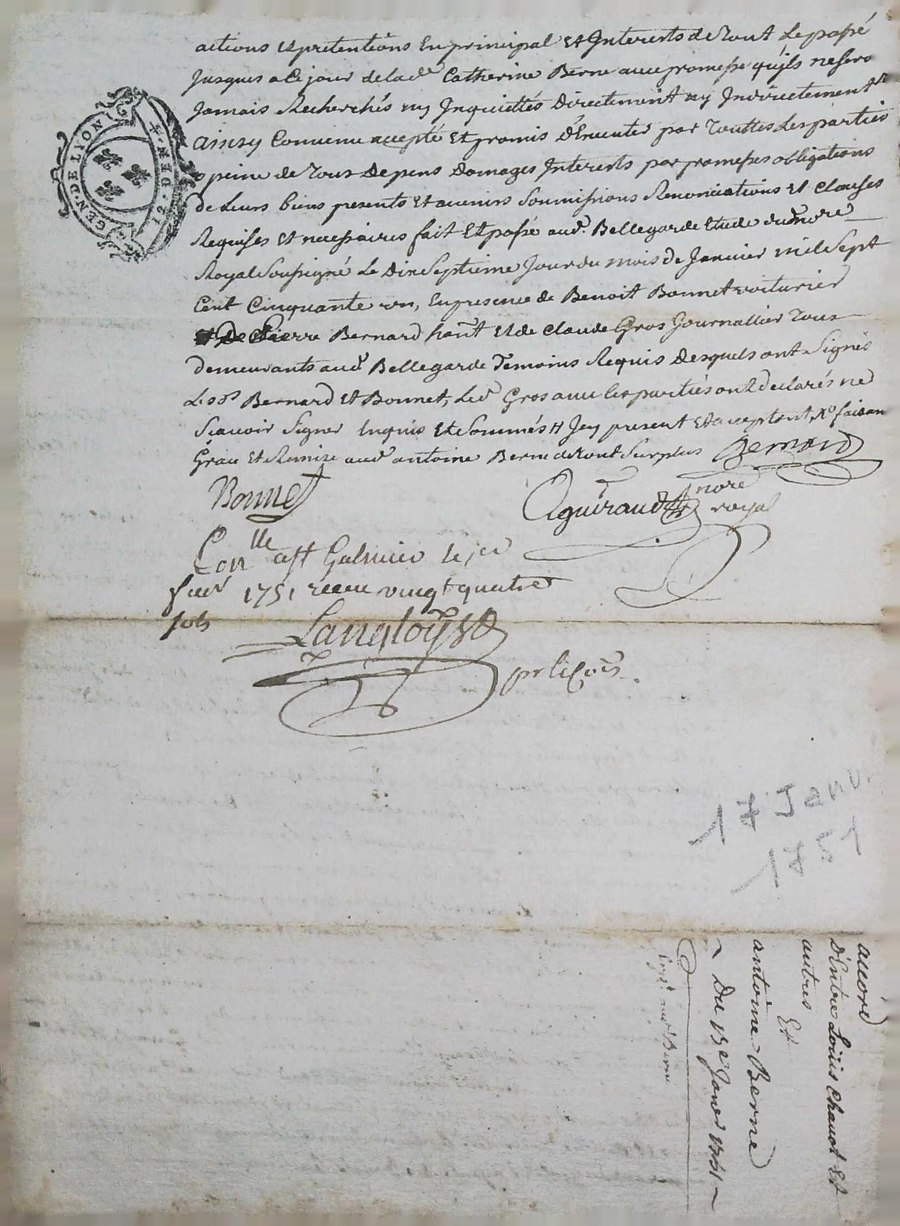 actions et pretentions En principal et Interests de tout Le passé
Jusques a Ce jour de lad.e Catherine Berne avec promesse qu'ils ne sero
Jamais Recherchés ny Inquiettés Directement ny Indirectement
ainsy Convenu accepté et promis d'Executer par touttes Les parties
a peine de tous Depens Domages Interests par promesses obligations
de Leurs biens presents et avenirs Soumissions Renonciations et Clauses
Requises et necessaires fait Et passé aud. Bellegarde Etude du nore
Royal Soussigné Le Dix Septieme Jour du mois de Janvier mil Sept
Cent Cinquante un, En presence de Benoit Bonnet voiturier
De Pierre Bernard hant Et de Claude Gros Journallier tous
demeurants aud. Bellegarde Temoins Requis Desquels ont Signés
Les srs Bernard Et Bonnet, Led. Gros avec les parties ont declarés ne
Scavoir Signer Enquis et Sommés present Et acceptant faisan
Grace Et Remise aud. antoine Berne de tout Surplus Bernard
Bonnet
Aguiraud nore royal
GEN. DE LYON
12. DEN.
Conlle a st Galmier le 1er
fevr 1751 receu vingt quatre
sols
Langloys
17 Janv.
1751
accord
D'Entre Loüis Chavot Et
autres
Et
antoine Berne
Du 17e Janer 1751